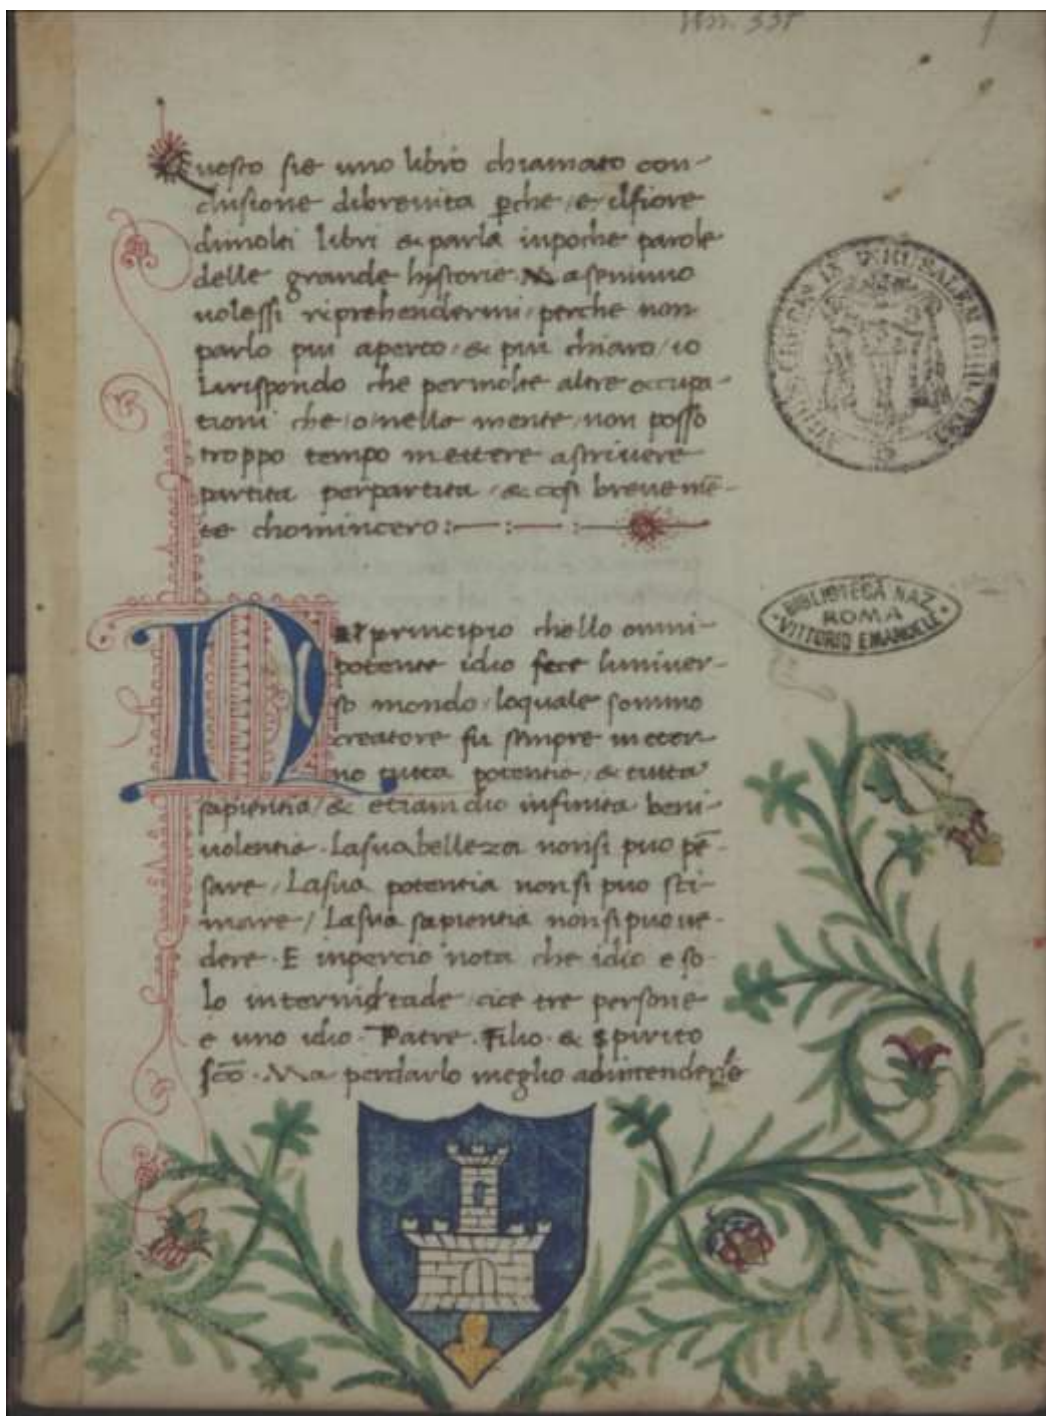 1
Questo sie uno libro chiamato con-
clusione dibrevita ꝑche /e/ ilfiore
dimolti libri & parla inpoche parole
delle grande hystorie. Ma seniuno
volessi riprehendermi / perche non
parlo piu aperto / & piu chiaro / io
lirispondo che permolte altre occupa-
tioni che /o/ nella mente / non posso
troppo tempo mettere ascrivere
partita perpartita / & cosi brevemẽ-
te chomincero :— :— :—
Nel principio chello omni-
potente idio fece luniver-
so mondo / loquale sommo
creatore fu sempre in eter-
no tutta potentia / & tutta
sapientia / & etiamdio infinita beni-
volentia. Lasua belleza nonsi puo pẽ-
sare / Lasua potentia nonsi puo sti-
mare / Lasua sapientia nonsi puo ve-
dere. E inpercio nota che idio e so-
lo in ternitade cioe tre persone
e uno idio. Patre. Filio. & Spirito
sc̃o. Ma perdarlo meglio adintendere
BIBLIOTECA NAZ.
ROMA
VITTORIO EMANUELE